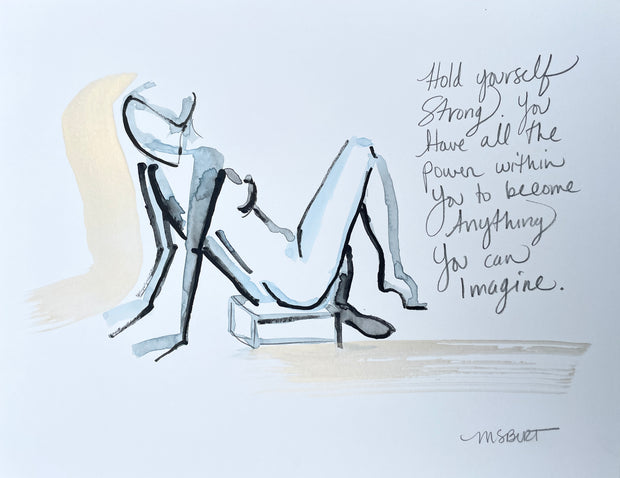 Hold yourself
Strong. You
Have all the
Power within
You to become
Anything
You can
Imagine.
MSBURT